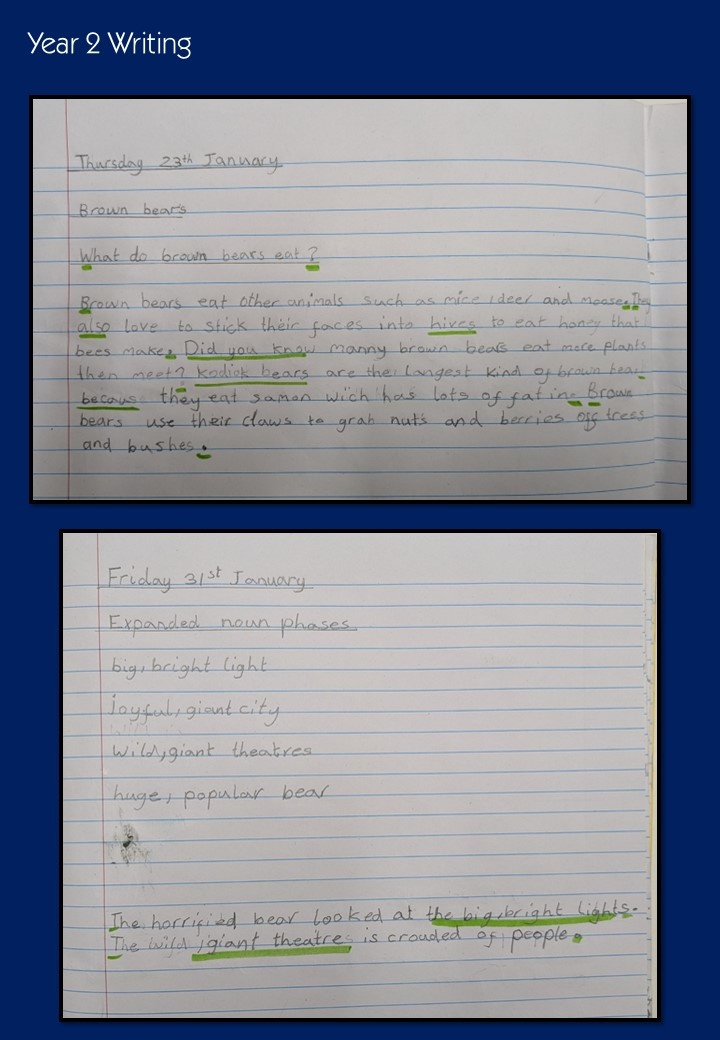 Year 2 Writing
Thursday 23th January
Brown bears
What do brown bears eat?
Brown bears eat other animals such as mice, deer and moose. They
also love to stick their faces into hives to eat honey that
bees make. Did you know manny brown bears eat more plants
then meet? Kodiak bears are the largest kind of brown bear
becaus they eat samon wich has lots of fat in. Brown
bears use their claws to grab nuts and berries off trees
and bushes.
Friday 31st January
Expanded noun phases
big, bright light
joyful, giant city
Wild, giant theatres
huge, popular bear
The horrified bear looked at the big, bright lights.
The wild, giant theatres is crouded of people.